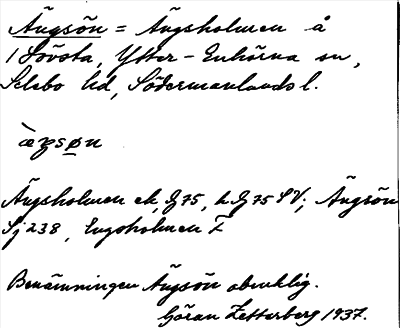 Ängsön = Ängsholmen å
1 Lövsta, Ytter-Enhörna sn,
Selebo hd, Södermanlands l.
`æŋsøn
Ängsholmen ek, G 75, h G 75 SV; Ängsön
Sj 238, Engsholmen F
Benämningen Ängsön obruklig.
Göran Zetterberg 1937.